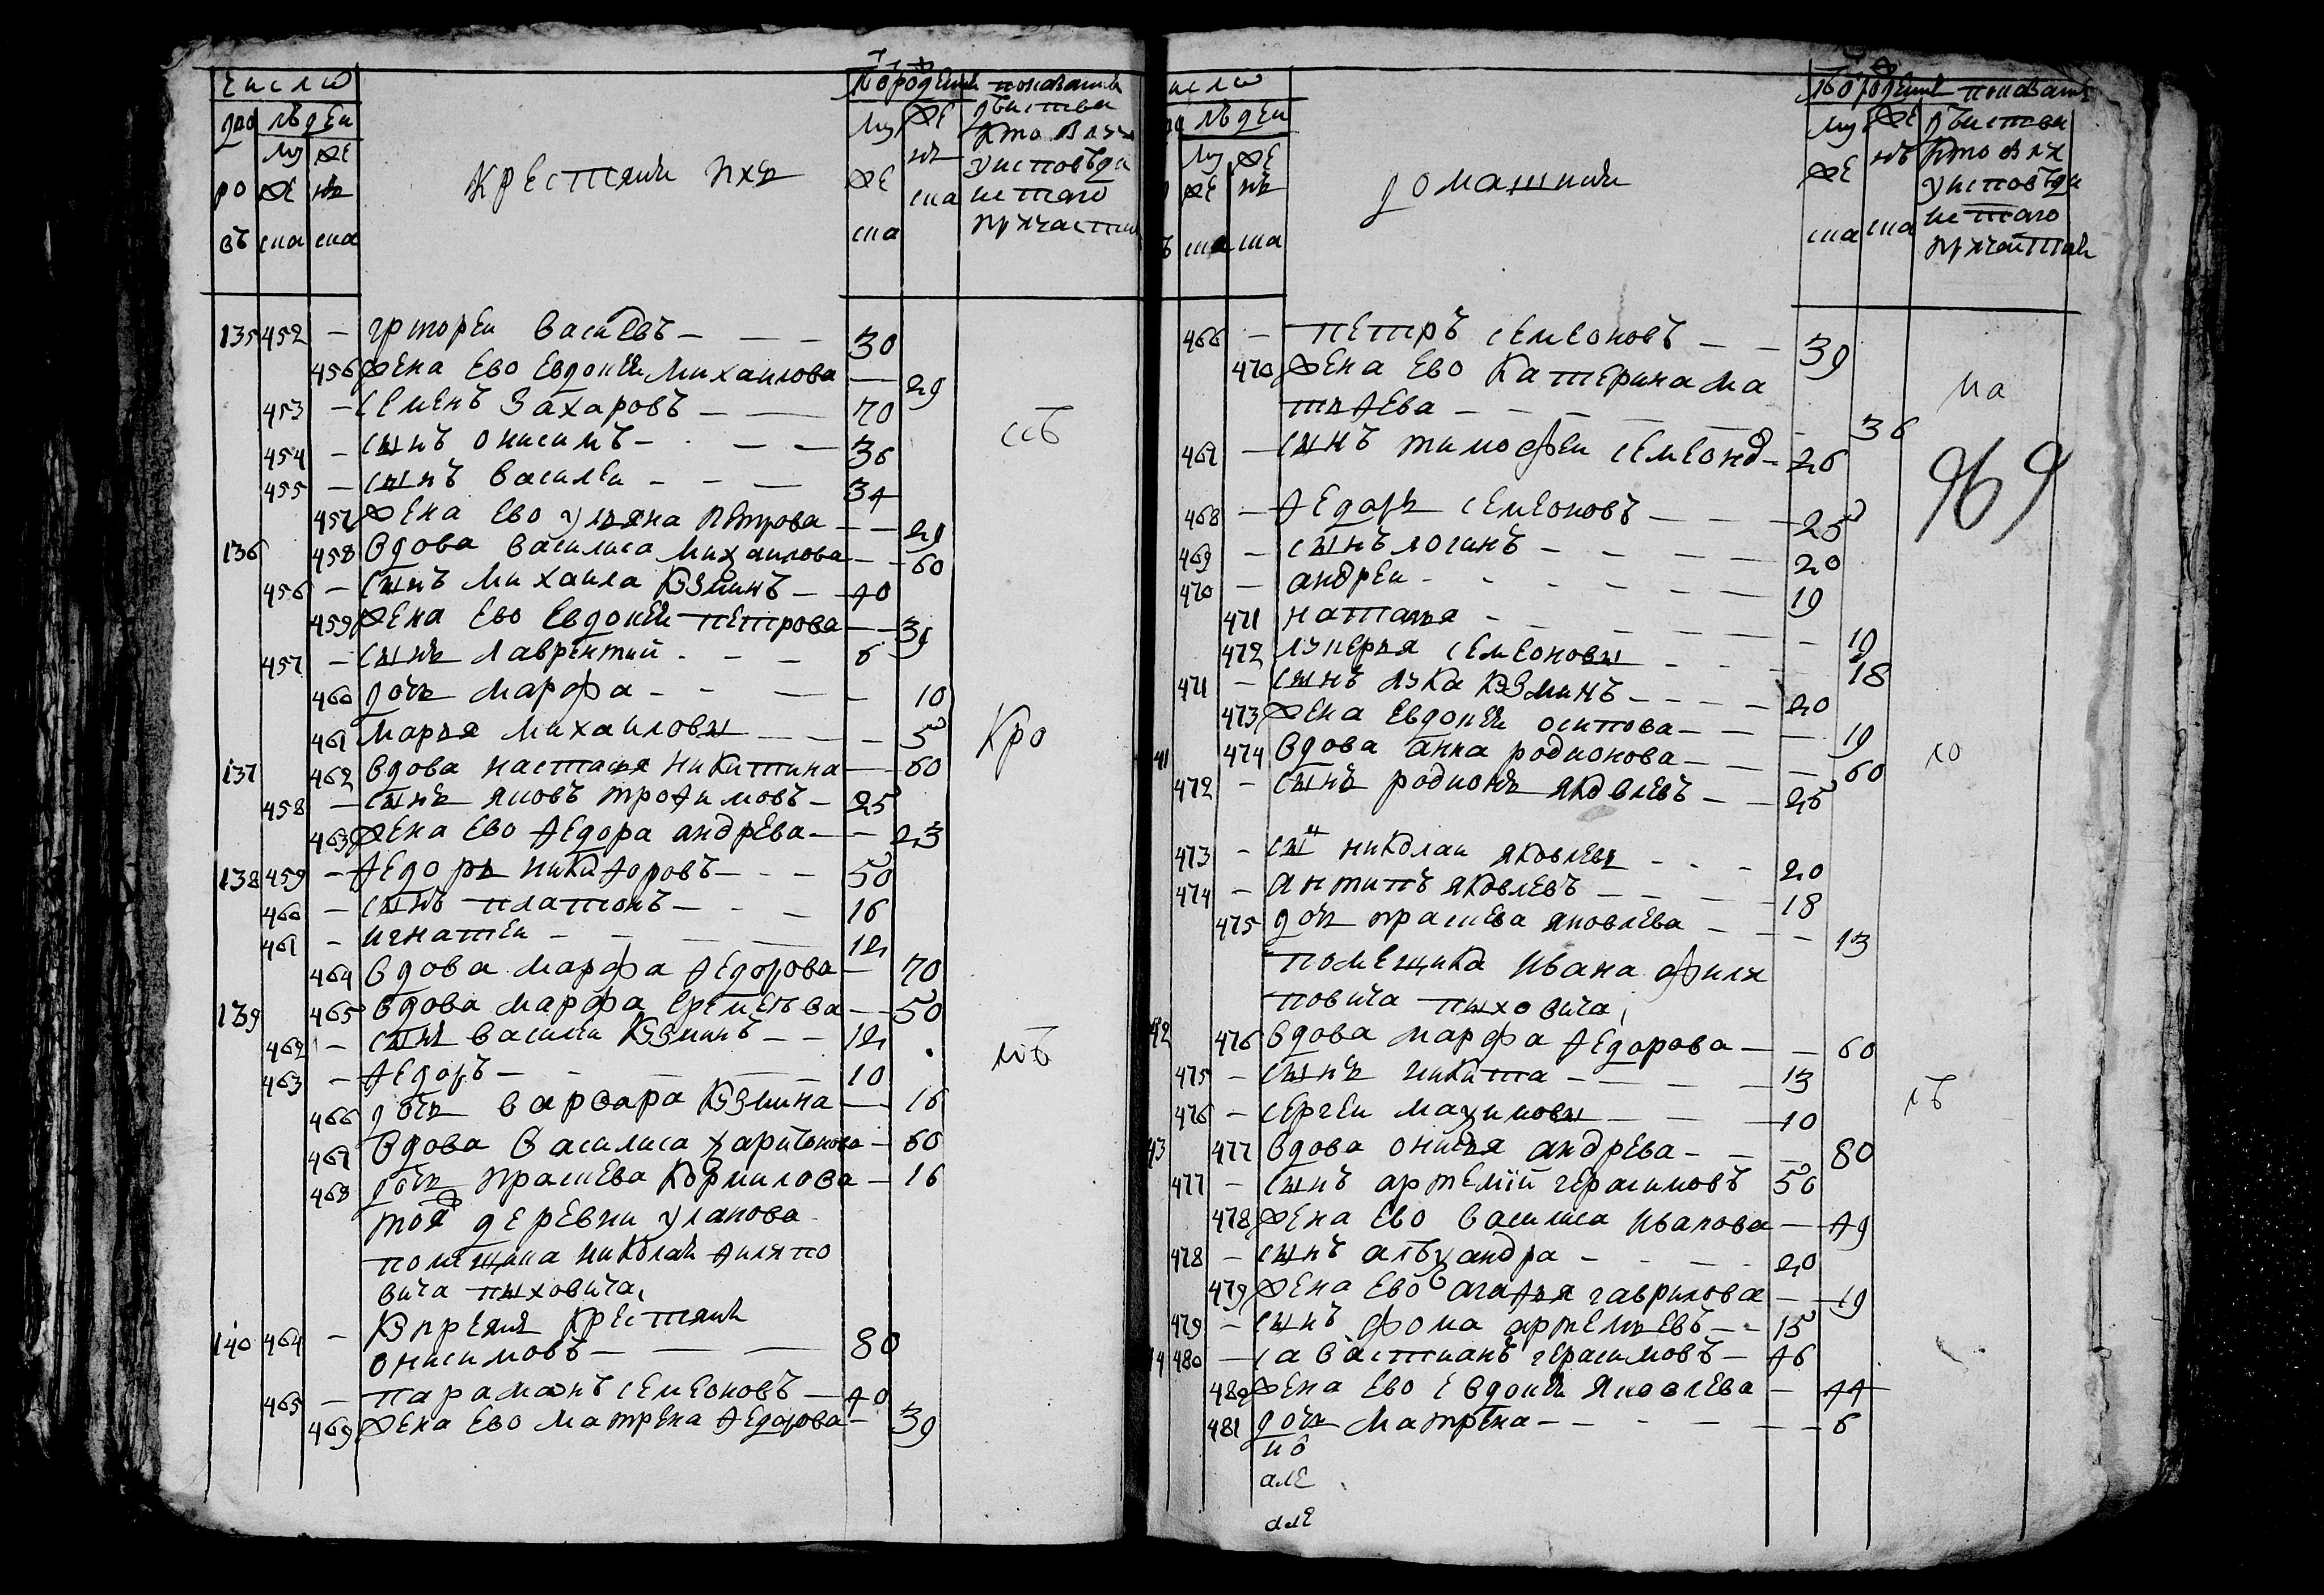 число
дво лѣ люди
ро му же
въ же нь
ска ска
крестяня ихъ
Ѿ рождения показания
му же дѣиства
же нь кто былъ
ска у исповѣди
ска и стаго
причастия
135 452 — григореи василевъ — 30
456 жена ево евдокея михаилова — 29
453 — семенъ захаровъ — 70
454 — сынъ онисимъ — 36
455 — сынъ василеи — 34
457 жена ево ульяна петрова — 29
136 458 вдова василиса михаилова — 60
456 — сынъ михаила кузминъ — 40
459 жена ево евдокея петрова — 39
457 — сынъ лаврентий — 6
460 дочь марфа — 10
461 марья михаиловы — 5
137 462 вдова настасья никитина — 60
458 — сынъ яковъ трофимовъ — 25
463 жена ево федора андрева — 23
138 459 — федоръ никифоровъ — 50
460 — сынъ платонъ — 16
461 — игнатеи — 12
464 вдова марфа федорова — 70
139 465 вдова марфа еремѣева — 50
462 — сынъ василеи кузминъ — 12
463 — федоръ — 10
466 дочь варвара кузмина — 16
467 вдова василиса харитонова — 60
468 дочь прасковя кормилова — 16
тоя ж деревни уланова
помещика николая филипо
вича пыховича
крестяня
140 464 — онисимовъ — 80
465 — парамонъ семеоновъ — 40
469 жена ево матрена федорова — 39
число
люди
му же
же нь
ска ска
домашния
Ѿ рождения показания
му же дѣиства
же нь кто былъ
ска ска у исповѣди
и стаго
причастия
466 — петръ семеоновъ — 39
470 жена ево катерина ма
тфѣева — 36
467 — сынъ тимофеи семеоновъ — 26
969
468 — федоръ семеоновъ — 25
469 — сынъ логинъ — 20
470 — андреи — 19
471 наталья — 19
472 лукерья семеоновы — 18
471 — сынъ лука кузминъ — 20
473 жена евдокея осипова — 19
41 474 вдова анна родионова — 60
472 — сынъ родионъ яковлевъ — 25
473 — сынъ николаи яковлевъ — 20
474 — антипъ яковлевъ — 18
475 дочь прасковя яковлева — 13
помещика ивана фили
повича пыховича
42 476 вдова марфа федорова — 60
475 — сынъ никита — 13
476 — сергеи — 10
43 477 вдова онисья андрева — 80
477 — сынъ артемий герасимовъ 50
478 жена ево василиса иванова — 49
478 — сынъ александра — 20
479 жена ево агафья гаврилова — 19
479 — сынъ фома артемьевъ — 15
44 480 — савастианъ герасимовъ — 46
480 жена ево евдокея яковлева — 44
481 дочь матрена — 6